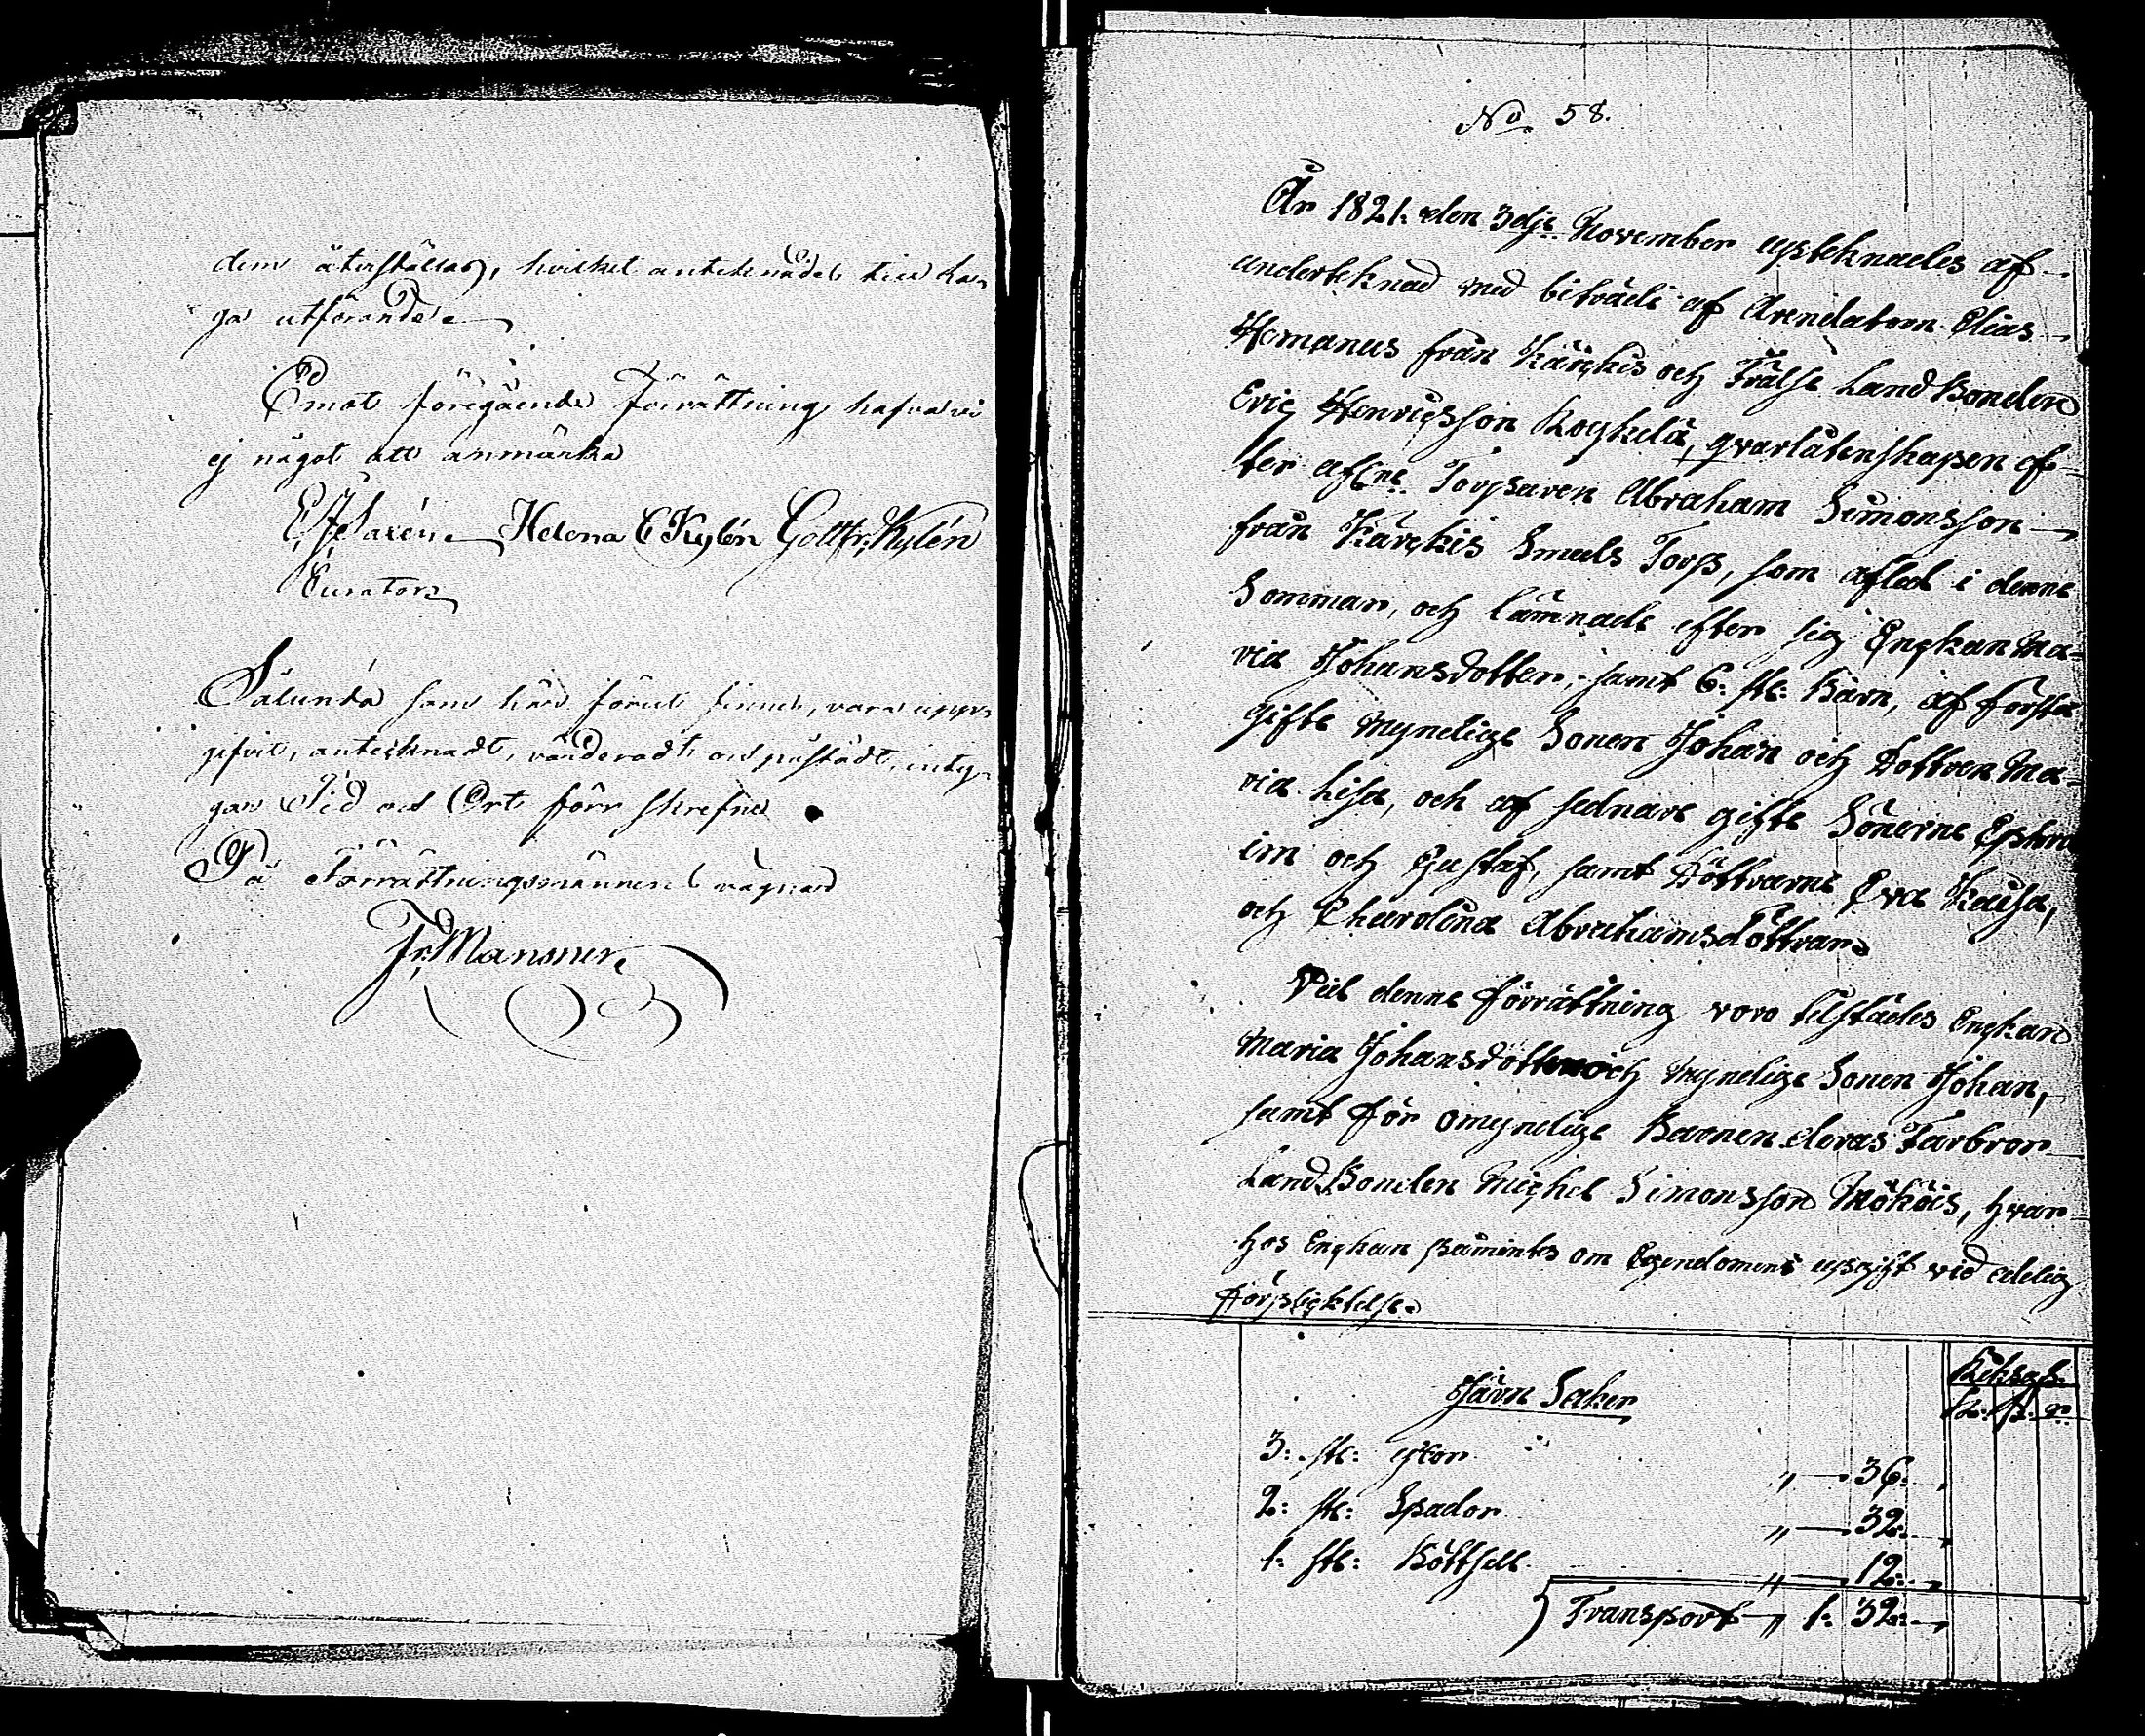 dem återställas, hvilket antecknades till ha-
ga utförande
Emot föregående Förrättning hafva vi
ej något att anmärka
Saxén Helena C Kylén Gottfr. Kylén
Curator
Sålunda som här förut finnes, vara upp-
gifvit, antecknadt, värderadt och påstådt, inty-
gar Tid och Ort förr skrefne
På Förrättningsmännens vägnar
Fr. Mansner
No. 58.
År 1821. den 3dje November upteknades af
underteknad med biträde af Arendatorn Elias
Homanus från Kärckis och Frälse Land Bonden
Eric Henricsson Koykelä, qvarlåtenskapen ef-
ter afl:ne Torparen Abraham Simonsson
från Kärckis Smeds Torp, som afled i denne
Sommar, och lämnade efter sig Enckan Ma-
ria Johansdotter, samt 6: st: Barn, af första
gifte Myndige Sonen Johan och Dottren Ma-
ria Lisa, och af sednare gifte Sönerne Ephra-
im och Gustaf, samt Döttrarne Eva Kaisa,
och Charolina Abrahamsdöttrar.
Vid denne förrättning voro tilstädes Enckan
Maria Johansdotter och Myndige Sonen Johan,
samt för omyndige Barnen deras Farbror
Land Bonden Michel Simonsson Mököis, hvar-
hos Enckan påmintes om Egendomens upgift vid edelig
förplicktelse.
Järn Saker
3: st: yxor " — 36:
2: st: Spador " — 32:
1: st: " — 12:
Transport " 1: 32: